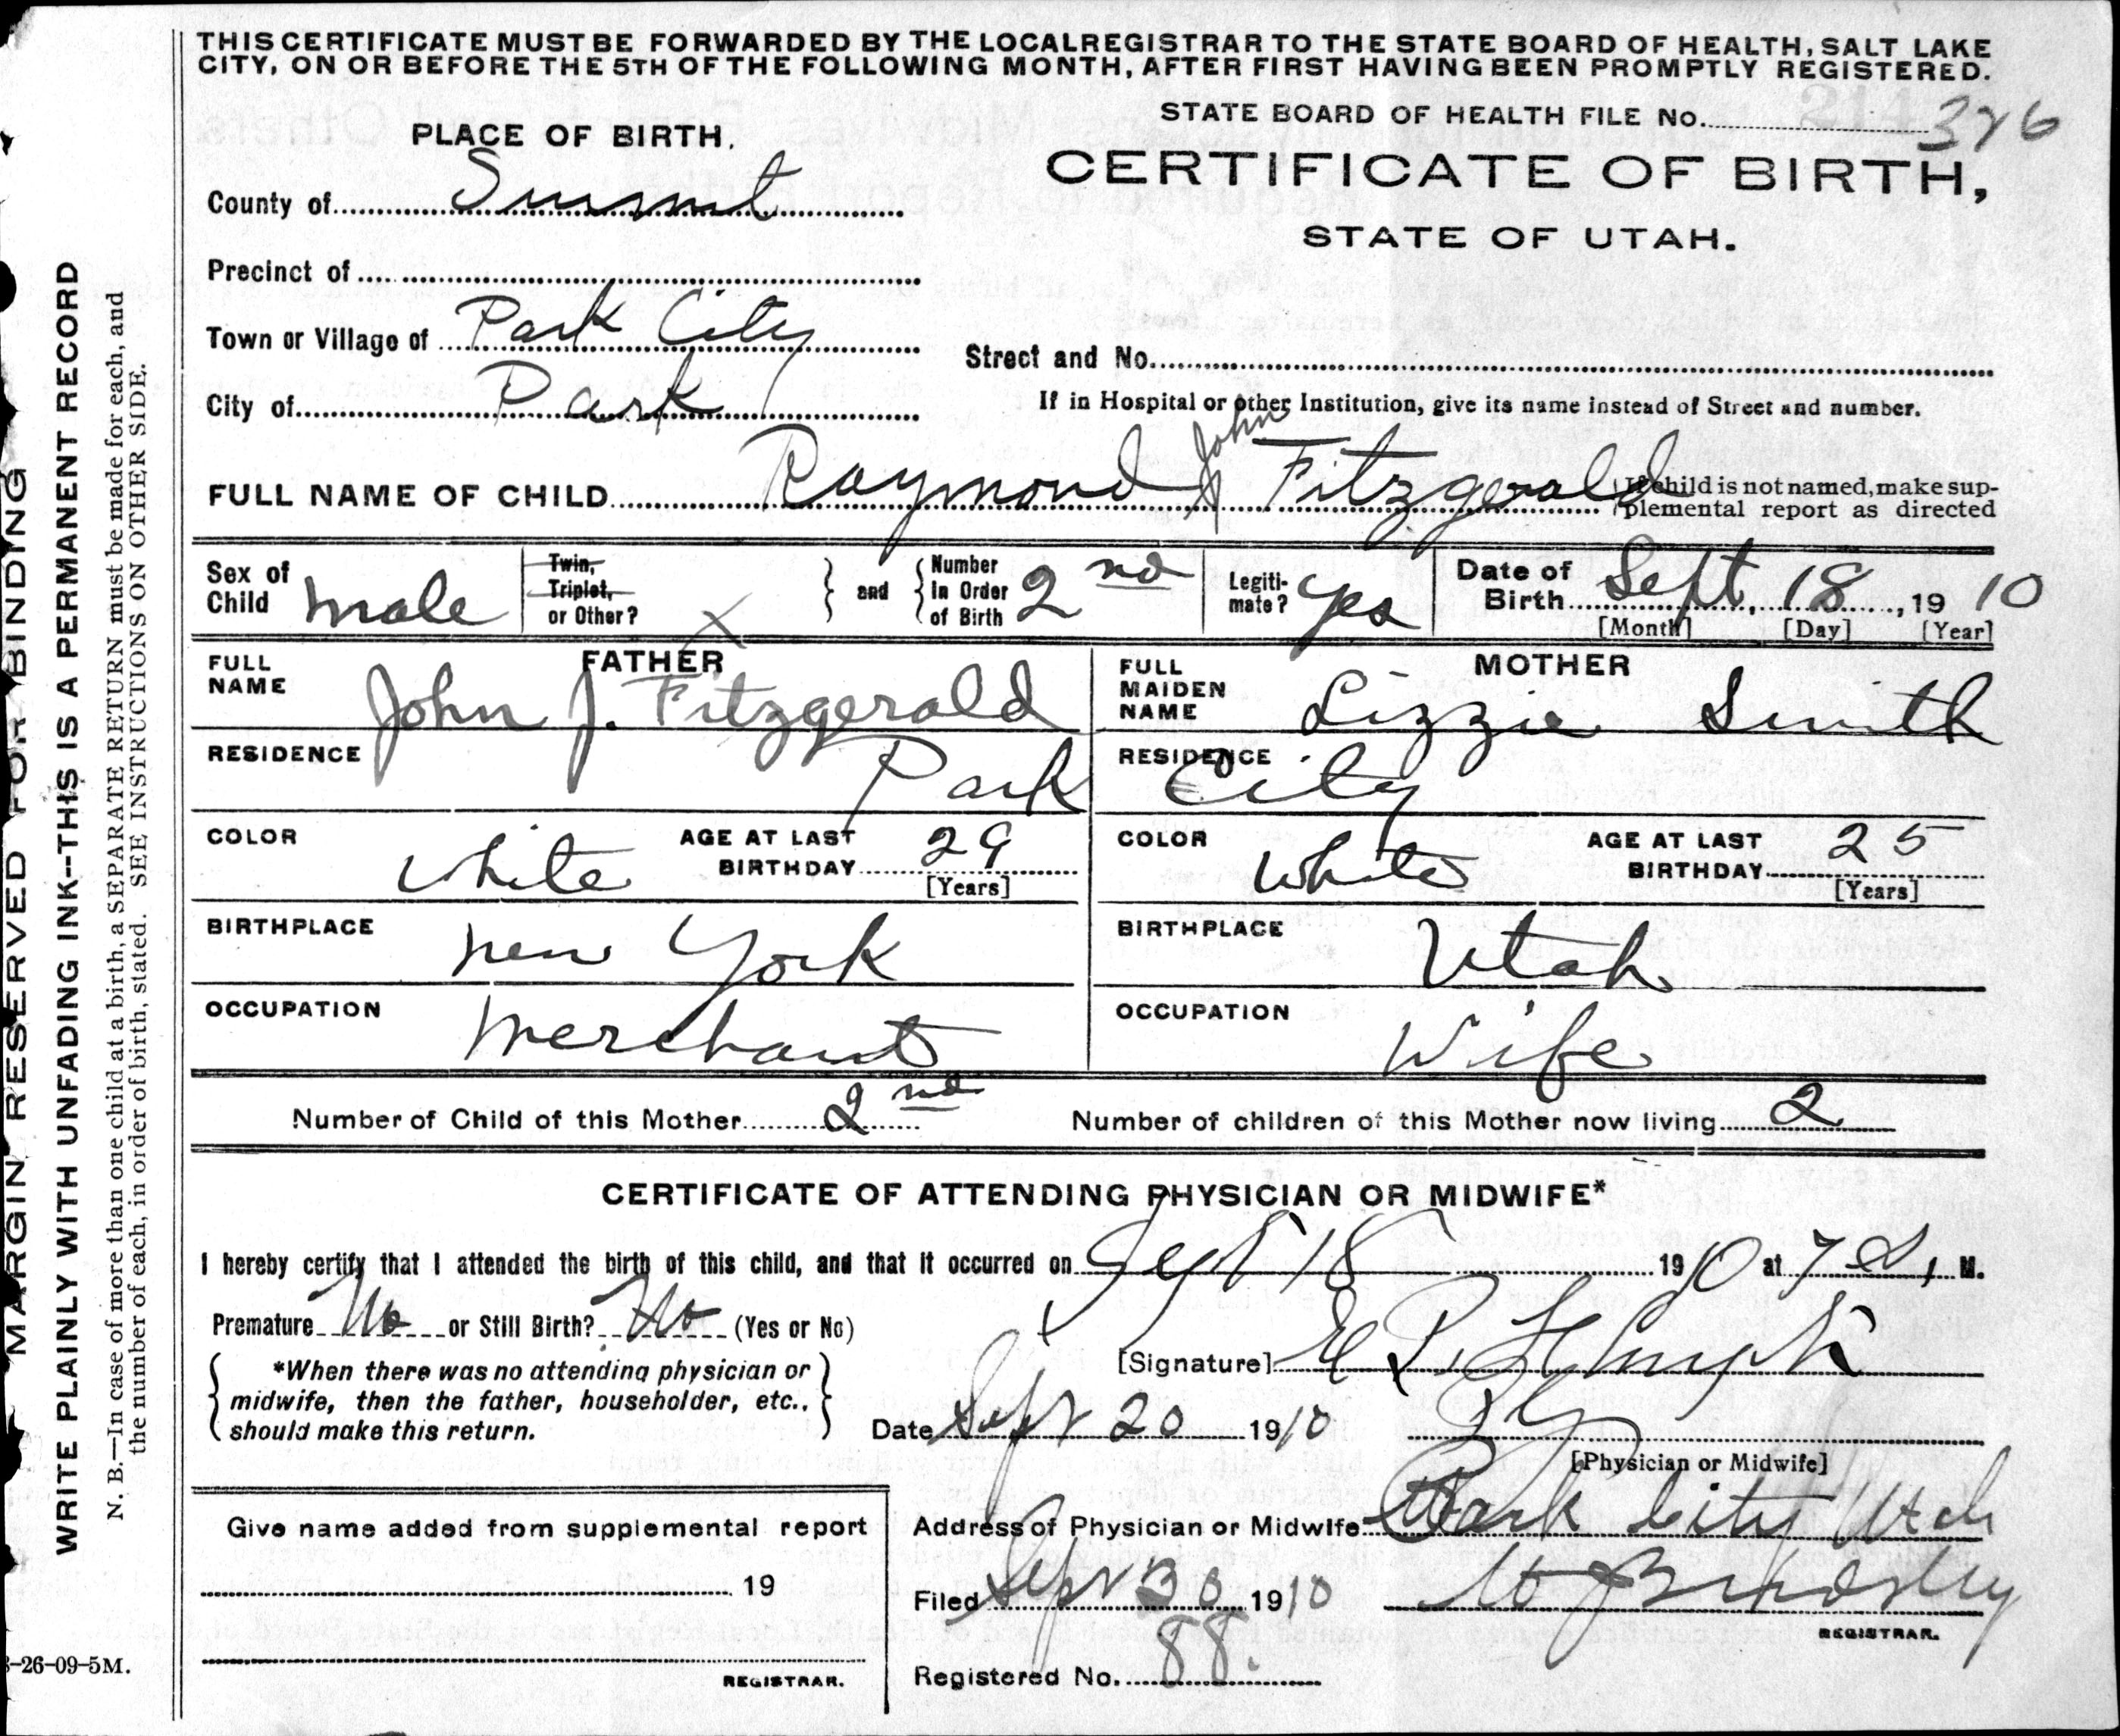 THIS CERTIFICATE MUST BE FORWARDED BY THE LOCAL REGISTRAR TO THE STATE BOARD OF HEALTH, SALT LAKE
CITY, ON OR BEFORE THE 5TH OF THE FOLLOWING MONTH, AFTER FIRST HAVING BEEN PROMPTLY REGISTERED.
STATE BOARD OF HEALTH FILE No. 326
PLACE OF BIRTH.
CERTIFICATE OF BIRTH,
STATE OF UTAH.
County of Summit
Precinct of
Town or Village of Park City
Street and No.
City of Park
If in Hospital or other Institution, give its name instead of Street and number.
John
FULL NAME OF CHILD Raymond J Fitzgerald
If child is not named, make sup-
plemental report as directed
Sex of Child male
Twin, Triplet, or Other?
and
Number in Order of Birth 2nd
Legiti-mate? yes
Date of Birth Sept. 18, 1910
[Month] [Day] [Year]
FATHER
FULL NAME John J. Fitzgerald
MOTHER
FULL MAIDEN NAME Lizzie Smith
RESIDENCE Park
RESIDENCE City
COLOR White
AGE AT LAST BIRTHDAY 29
[Years]
COLOR White
AGE AT LAST BIRTHDAY 25
[Years]
BIRTHPLACE New York
BIRTHPLACE Utah
OCCUPATION Merchant
OCCUPATION Wife
Number of Child of this Mother 2nd
Number of children of this Mother now living 2
CERTIFICATE OF ATTENDING PHYSICIAN OR MIDWIFE*
I hereby certify that I attended the birth of this child, and that it occurred on Sept 18 1910 at 7 a. M.
Premature No or Still Birth? No (Yes or No)
*When there was no attending physician or
midwife, then the father, householder, etc.,
should make this return.
[Signature] E P
Date Sept 20 1910
[Physician or Midwife]
Give name added from supplemental report
19
REGISTRAR.
Address of Physician or Midwife Park City Utah
Filed Sept 30 1910
REGISTRAR.
Registered No. 88.
MARGIN RESERVED FOR BINDING
WRITE PLAINLY WITH UNFADING INK--THIS IS A PERMANENT RECORD
N. B.—In case of more than one child at a birth, a SEPARATE RETURN must be made for each, and
the number of each, in order of birth, stated. SEE INSTRUCTIONS ON OTHER SIDE.
-26-09-5M.